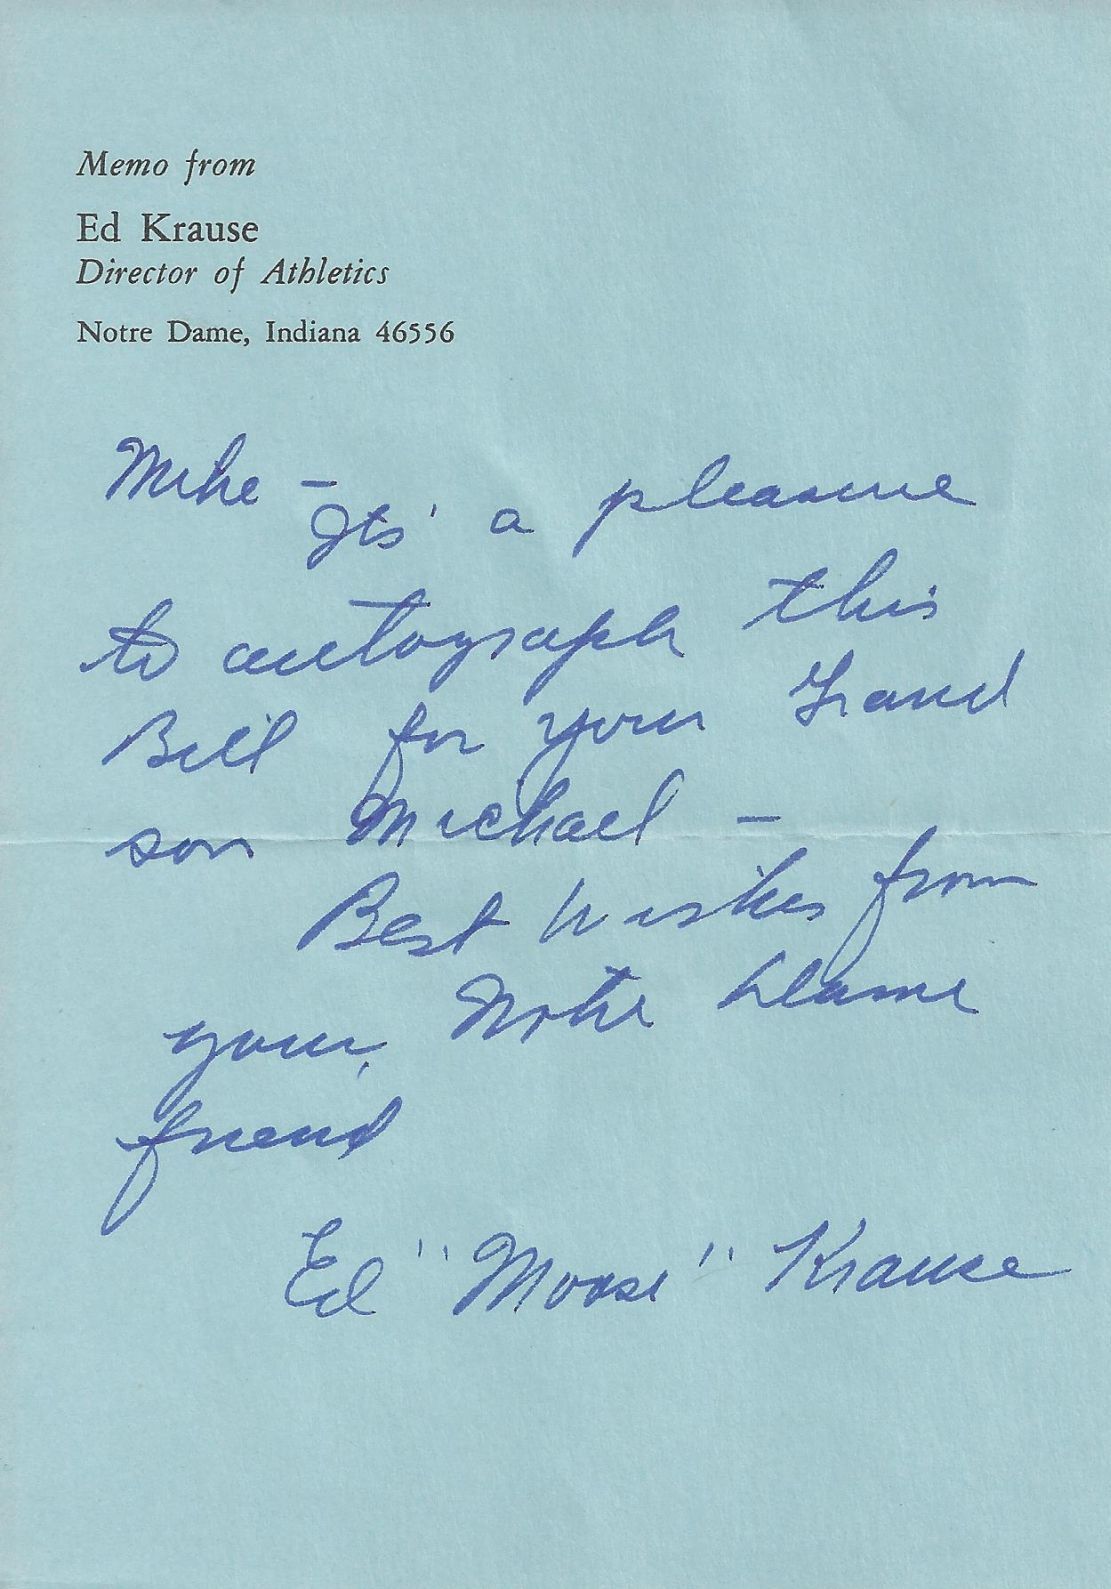 Memo from
Ed Krause
Director of Athletics
Notre Dame, Indiana 46556
Mike –
Its' a pleasure
to autograph this
Bill for your Grand
son Michael –
Best Wishes from
your Notre Dame
friend
Ed "Moose" Krause